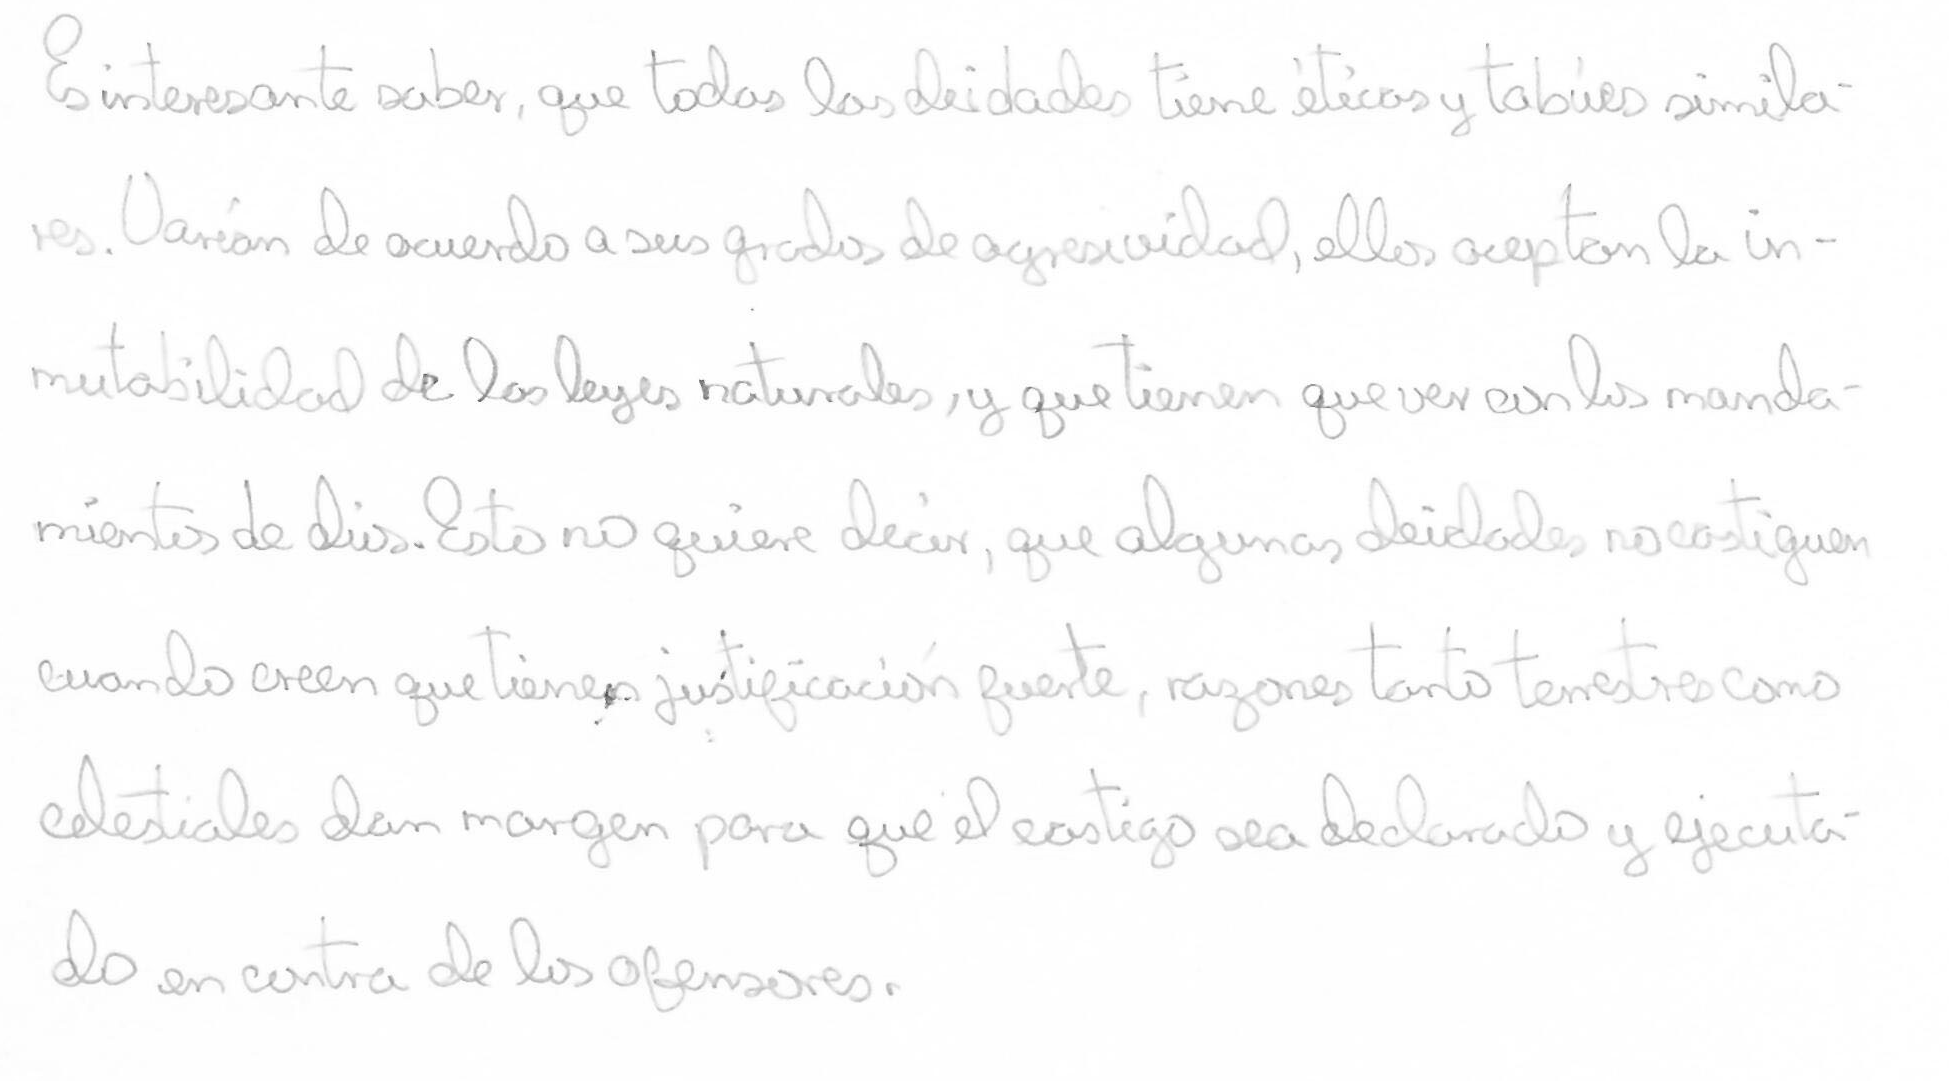 Es interesante saber, que todas las deidades tiene éticas y tabúes simila-
res. Varían de acuerdo a sus grados de agresividad, ellos aceptan la in-
mutabilidad de las leyes naturales, y que tienen que ver con los manda-
mientos de dios. Esto no quiere decir, que algunas deidades no castiguen
cuando creen que tienen justificación fuerte, razones tanto terrestres como
celestiales dan margen para que el castigo sea declarado y ejecuta-
do en contra de los ofensores.